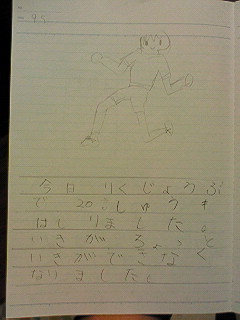 今日りくじょうぶ
で20しゅうも
はしりました。
いきがちょっと
いきができなく
なりました。